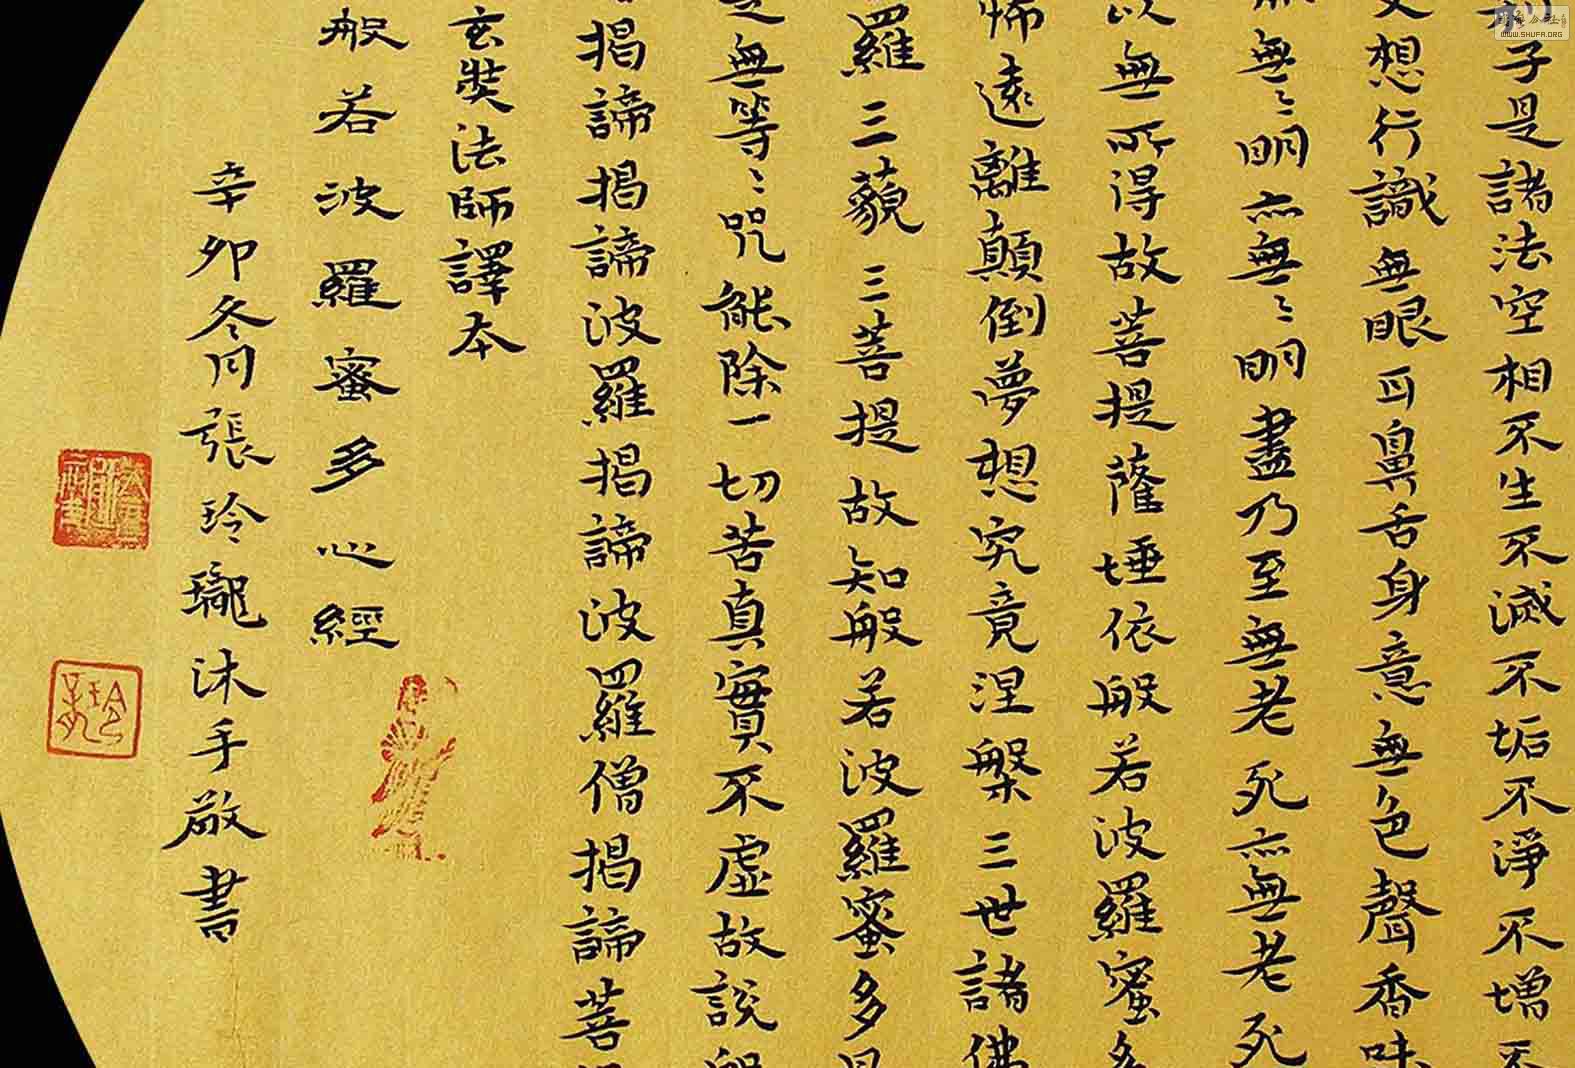 子是諸法空相不生不滅不垢不淨不增不
想行識無眼耳鼻舌身意無色聲香味
無〻明亦無〻明盡乃至無老死亦無老死
以無所得故菩提薩埵依般若波羅蜜多
怖遠離顛倒夢想究竟涅槃三世諸佛
羅三藐三菩提故知般若波羅蜜多是
是無等〻咒能除一切苦真實不虛故說般
揭諦揭諦波羅揭諦波羅僧揭諦菩提
玄奘法師譯本
般若波羅蜜多心經
辛卯冬月張玲瓏沐手敬書
WWW.SHUFA.ORG